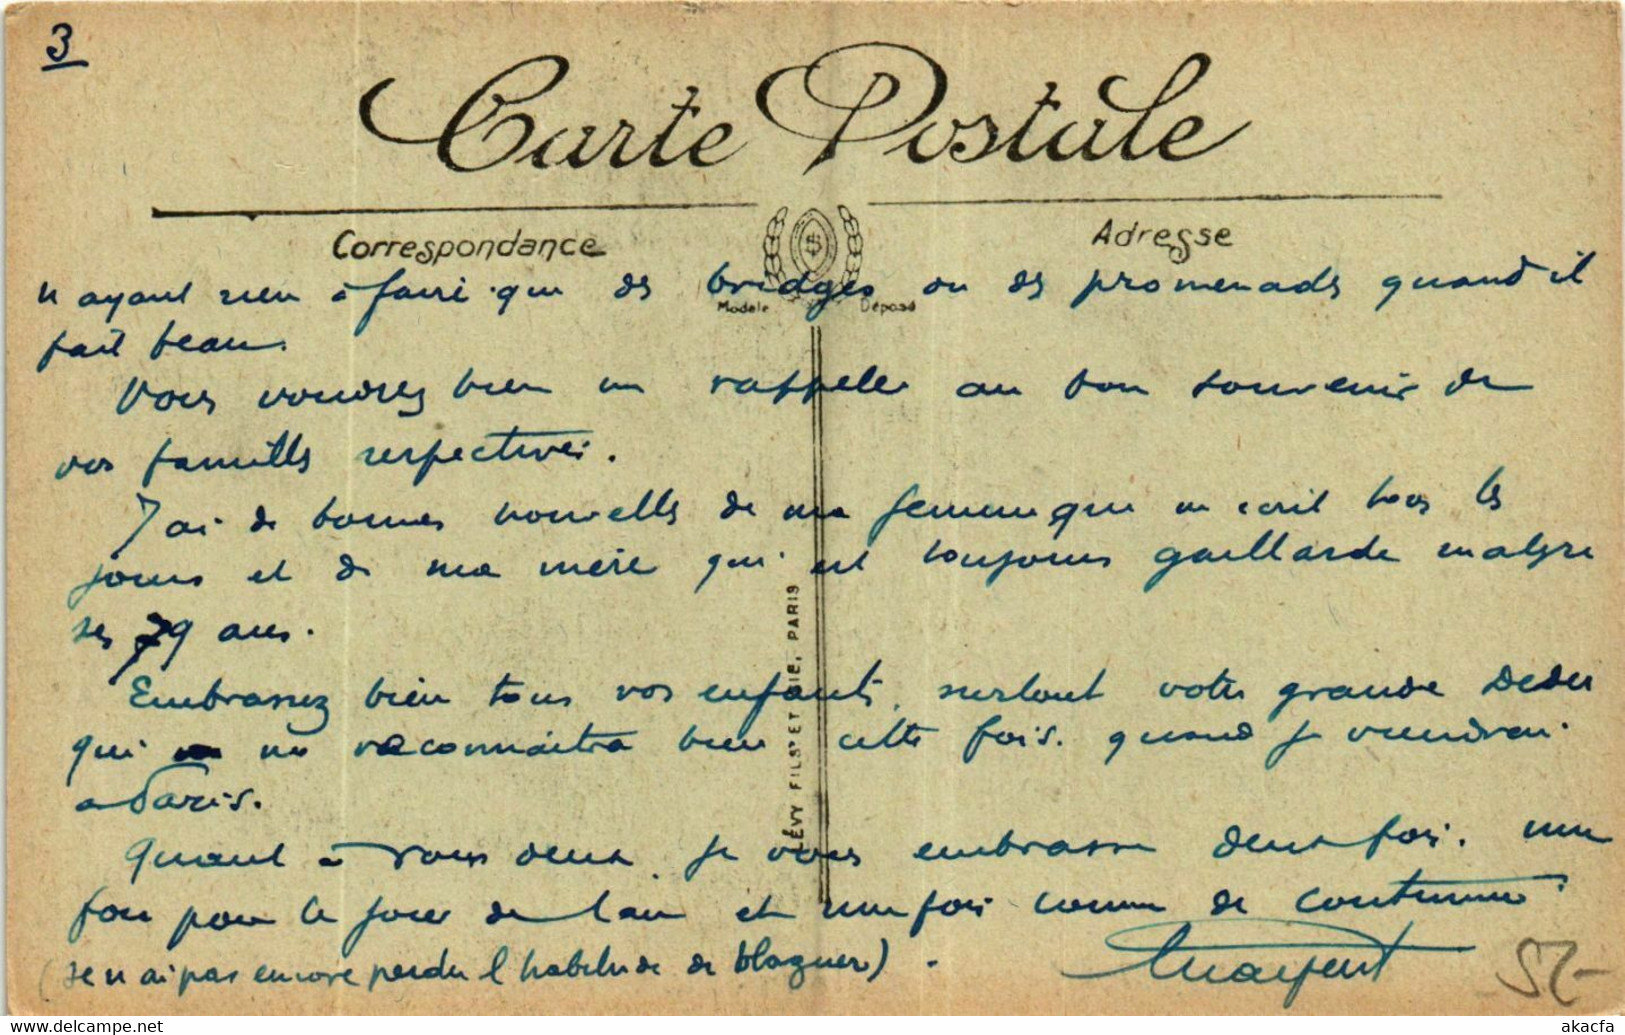 3
Carte Postale
Correspondance
Adresse
n'ayant rien à faire que des bridges ou des promenades quand il
Modèle Déposé
fait beau.
Vous voudrez bien me rappeler au bon souvenir de
vos familles respectives.
J'ai de bonnes nouvelles de ma femme qui m'écrit tous les
jours et de ma mère qui est toujours gaillarde malgré
ses 79 ans.
Embrassez bien tous vos enfants, surtout votre grande Dédée
qui me reconnaitra bien cette fois. quand je viendrai
à Paris.
Quant à vous deux, je vous embrasse deux fois. une
fois pour le jour de l'an et une fois comme de coutume
(Je n'ai pas encore perdu l'habitude de blaguer).
LÉVY FILS ET CIE, PARIS
52-
www.delcampe.net
akacfa